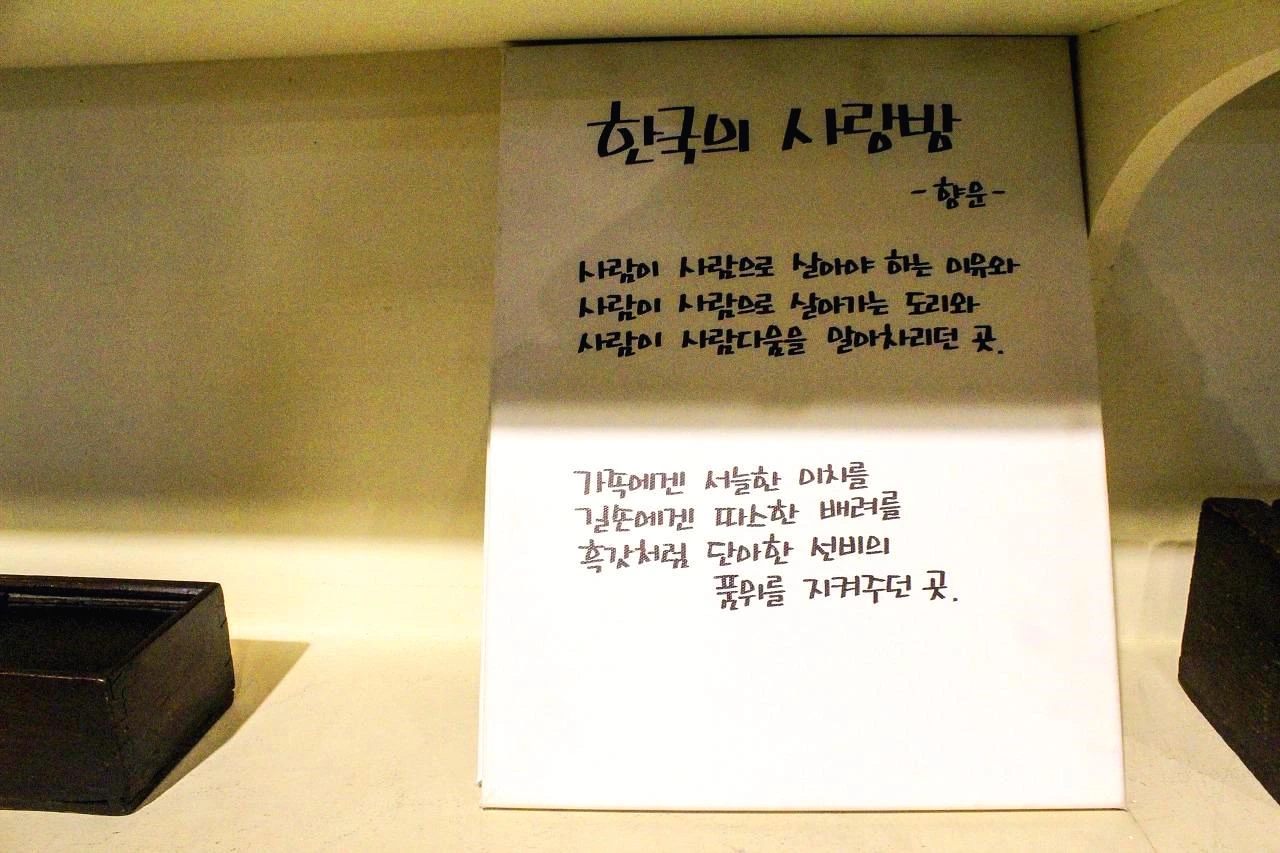 한국의 사랑방
-향운-
사람이 사람으로 살아야 하는 이유와
사람이 사람으로 살아가는 도리와
사람이 사람다움을 알아차리던 곳.
가족에겐 서늘한 이치를
길손에겐 따스한 배려를
흑갓처럼 단아한 선비의
품위를 지켜주던 곳.